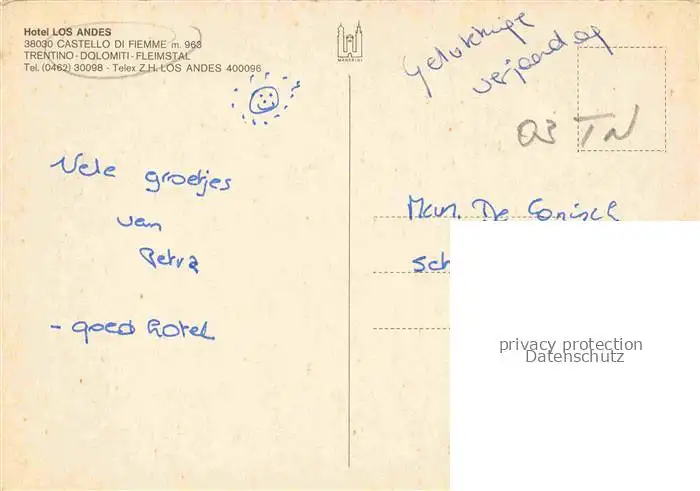 Hotel LOS ANDES
38030 CASTELLO DI FIEMME m. 963
TRENTINO - DOLOMITI - FLEIMSTAL
Tel. (0462) 30098 - Telex Z.H. LOS ANDES 400096
MANFRINI
Gelukkige
verjaardag
03 TN
Vele groetjes
van
Petra
- goed hotel
De Conisch
Sch
privacy protection
Datenschutz